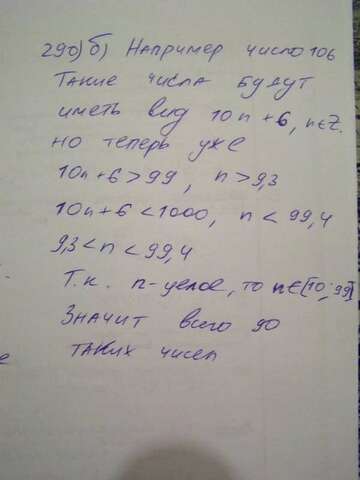 290) б) Например число 106
Такие числа будут
иметь вид 10n+6, n∈Z.
но теперь уже
10n+6>99, n>9,3
10n+6<1000, n<99,4
9,3<n<99,4
Т.к. n-целое, то n∈[10;99]
Значит всего 90
таких чисел